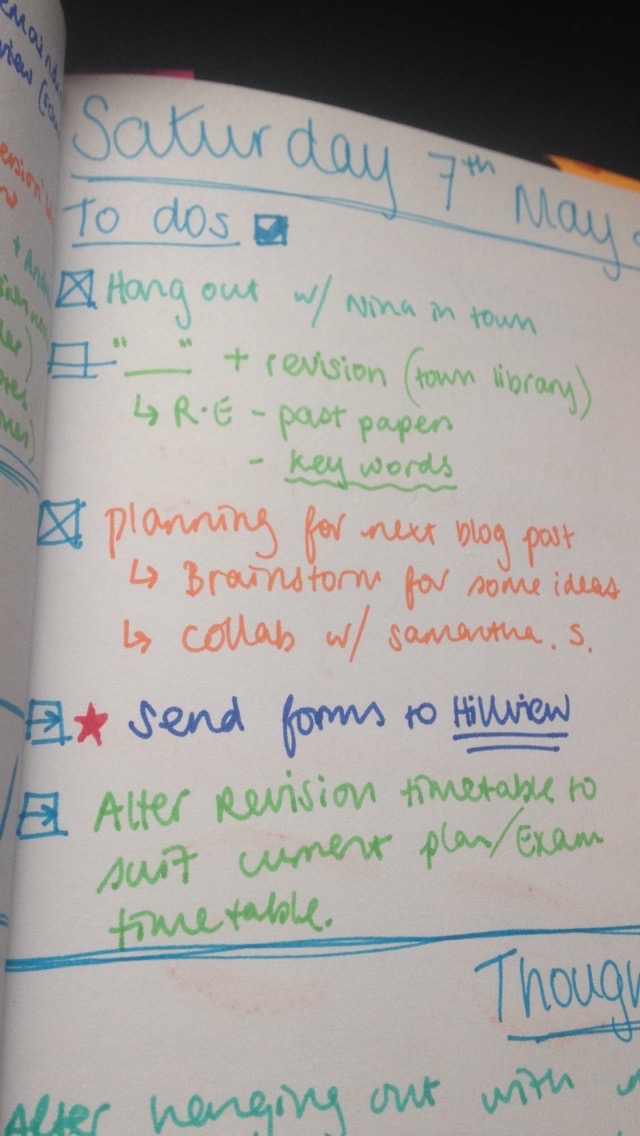 Saturday 7th May
To dos
Hang out w/ Nina in town
"___" + revision (town library)
↳ R.E - past papers
- key words
planning for next blog post
↳ Brainstorm for some ideas
↳ collab w/ samantha. S.
★ Send forms to Hillview
Alter Revision timetable to
suit current plan/Exam
timetable.
Though
After hanging out with